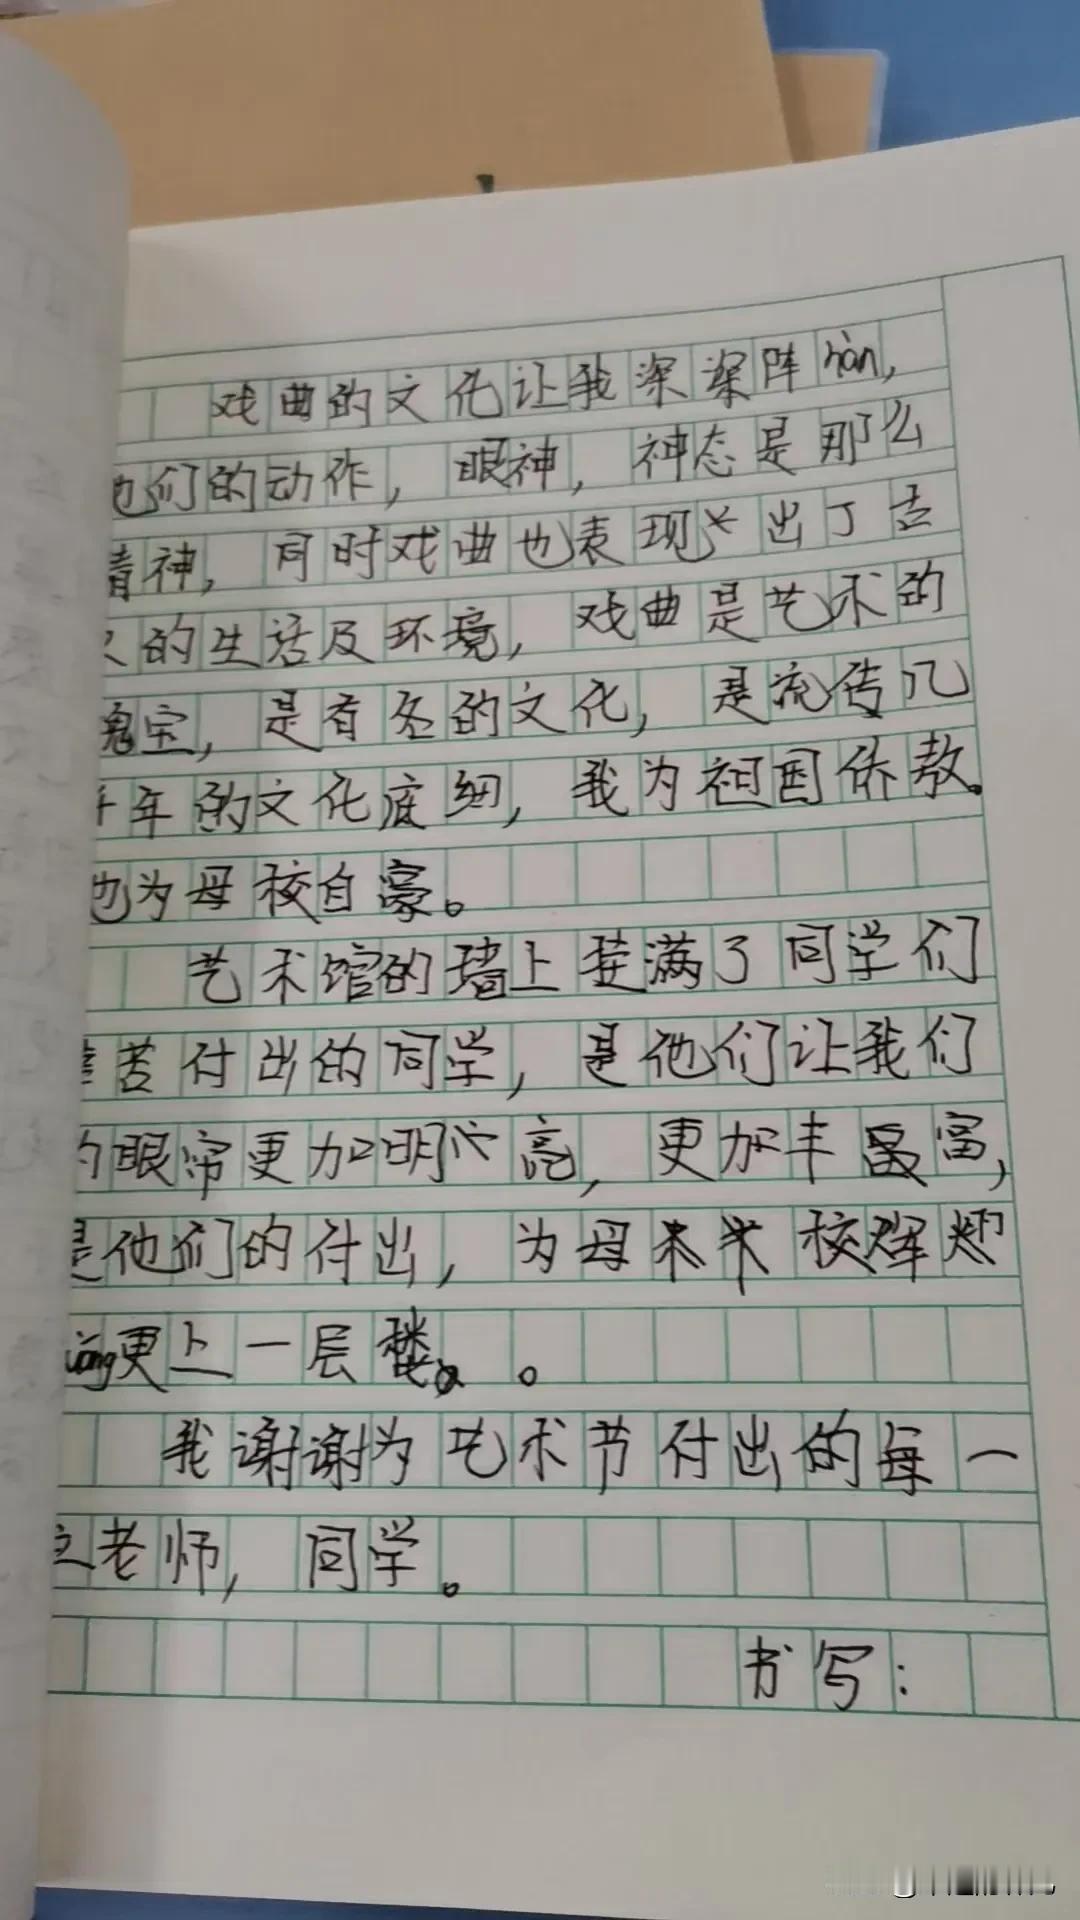 戏曲的文化让我深深阵hàn,
他们的动作,眼神,神态是那么
精神,同时戏曲也表现出了古
人的生活及环境,戏曲是艺术的
瑰宝,是有名的文化,是流传几
千年的文化底细,我为祖国侨敖。
也为母校自豪。
艺术馆的墙上挂满了同学们
辛苦付出的同学,是他们让我们
的眼帘更加明亮,更加丰富,
是他们的付出,为母校辉煌
更上一层楼。
我谢谢为艺术节付出的每一
位老师,同学。
书写: